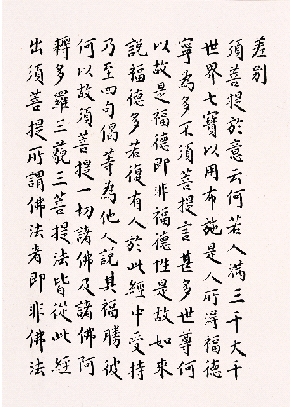 差别
須菩提於意云何若人滿三千大千
世界七寶以用布施是人所得福德
寧為多不須菩提言甚多世尊何
以故是福德即非福德性是故如來
說福德多若復有人於此經中受持
乃至四句偈等為他人說其福勝彼
何以故須菩提一切諸佛及諸佛阿
耨多羅三藐三菩提法皆從此經
出須菩提所謂佛法者即非佛法